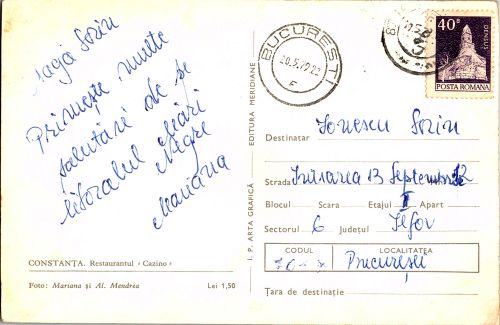 Dragă Sorin
Primește multe
salutări de pe
litoralul Mării
Negre
Mariana
CONSTANȚA. Restaurantul « Cazino »
Foto: Mariana și Al. Mendrea
Lei 1,50
I. P. ARTA GRAFICĂ
EDITURA MERIDIANE
BUCUREȘTI
40B
DENSUȘ
POSTA ROMANA
Destinatar Ionescu Sorin
Strada Intrarea 13 Septembrie
Blocul Scara Etajul I Apart
Sectorul 6 Județul Ilfov
CODUL LOCALITATEA
București
Țara de destinație